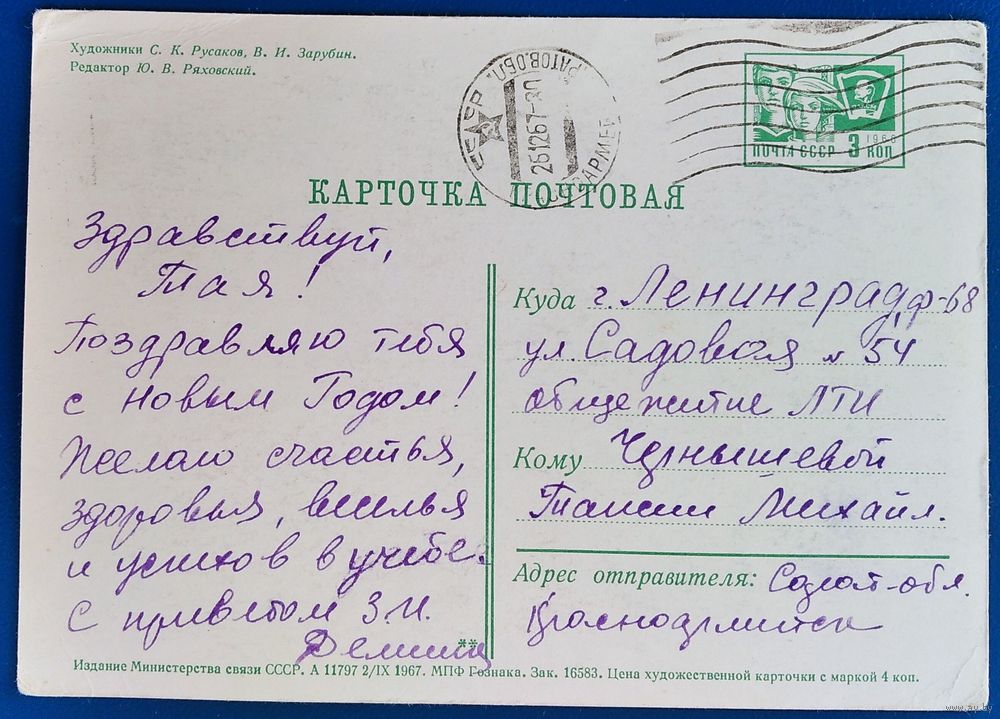 Художники С. К. Русаков, В. И. Зарубин.
Редактор Ю. В. Ряховский.
СССР
РАТОВ.ОБЛ.
261267-80
АРМЕ
ПОЧТА СССР 3 КОП
1966
КАРТОЧКА ПОЧТОВАЯ
Здравствуй,
Тая!
Поздравляю тебя
с Новым Годом!
Желаю счастья,
здоровья, веселья
и успехов в учебе.
С приветом З.И.
Куда г. Ленинград, ф-68
ул. Садовая № 54
общежитие ЛТИ
Кому Чернышевой
Таисии Михайл.
Адрес отправителя: Сарат-обл.
Красноармейск
**
Издание Министерства связи СССР. А 11797 2/IX 1967. МПФ Гознака. Зак. 16583. Цена художественной карточки с маркой 4 коп.
www.ay.by